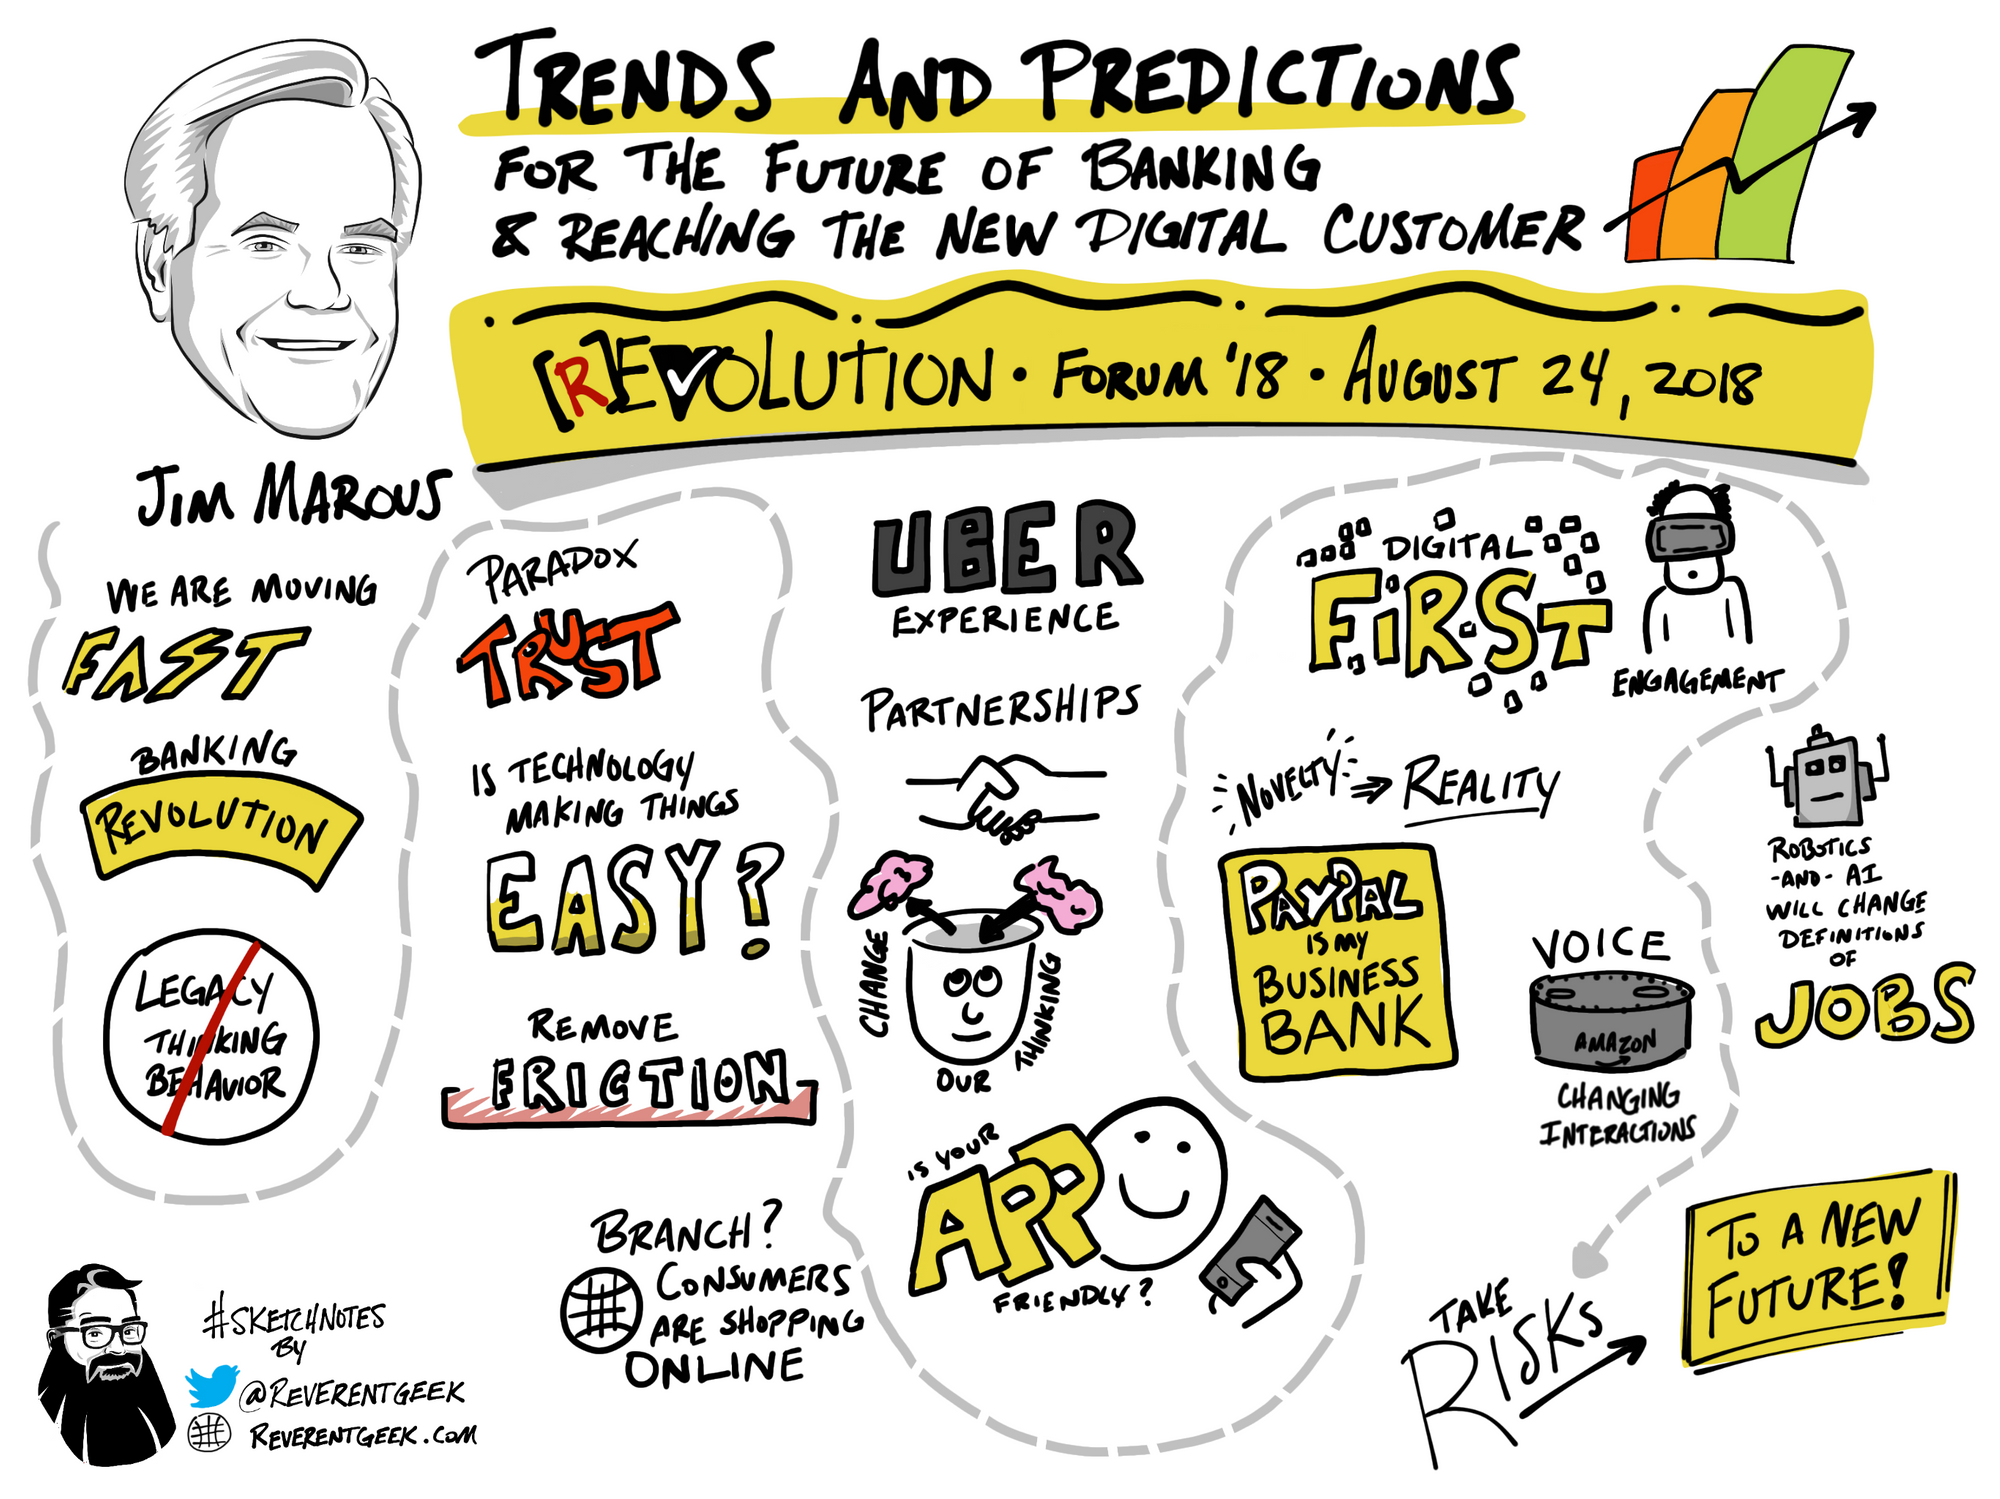 TRENDS AND PREDICTIONS
FOR THE FUTURE OF BANKING
& REACHING THE NEW DIGITAL CUSTOMER
[R]EVOLUTION • FORUM '18 • AUGUST 24, 2018
JIM MAROUS
WE ARE MOVING
FAST
BANKING
REVOLUTION
LEGACY
THINKING
BEHAVIOR
PARADOX
TRUST
IS TECHNOLOGY
MAKING THINGS
EASY?
REMOVE
FRICTION
BRANCH?
CONSUMERS
ARE SHOPPING
ONLINE
UBER
EXPERIENCE
PARTNERSHIPS
CHANGE
OUR
THINKING
IS YOUR
APP
FRIENDLY?
DIGITAL
FIRST
ENGAGEMENT
NOVELTY
REALITY
PAYPAL
IS MY
BUSINESS
BANK
VOICE
AMAZON
CHANGING
INTERACTIONS
ROBOTICS
-AND- AI
WILL CHANGE
DEFINITIONS
OF
JOBS
TAKE
RISKS
TO A NEW
FUTURE!
#SKETCHNOTES
BY
@REVERENTGEEK
REVERENTGEEK.COM